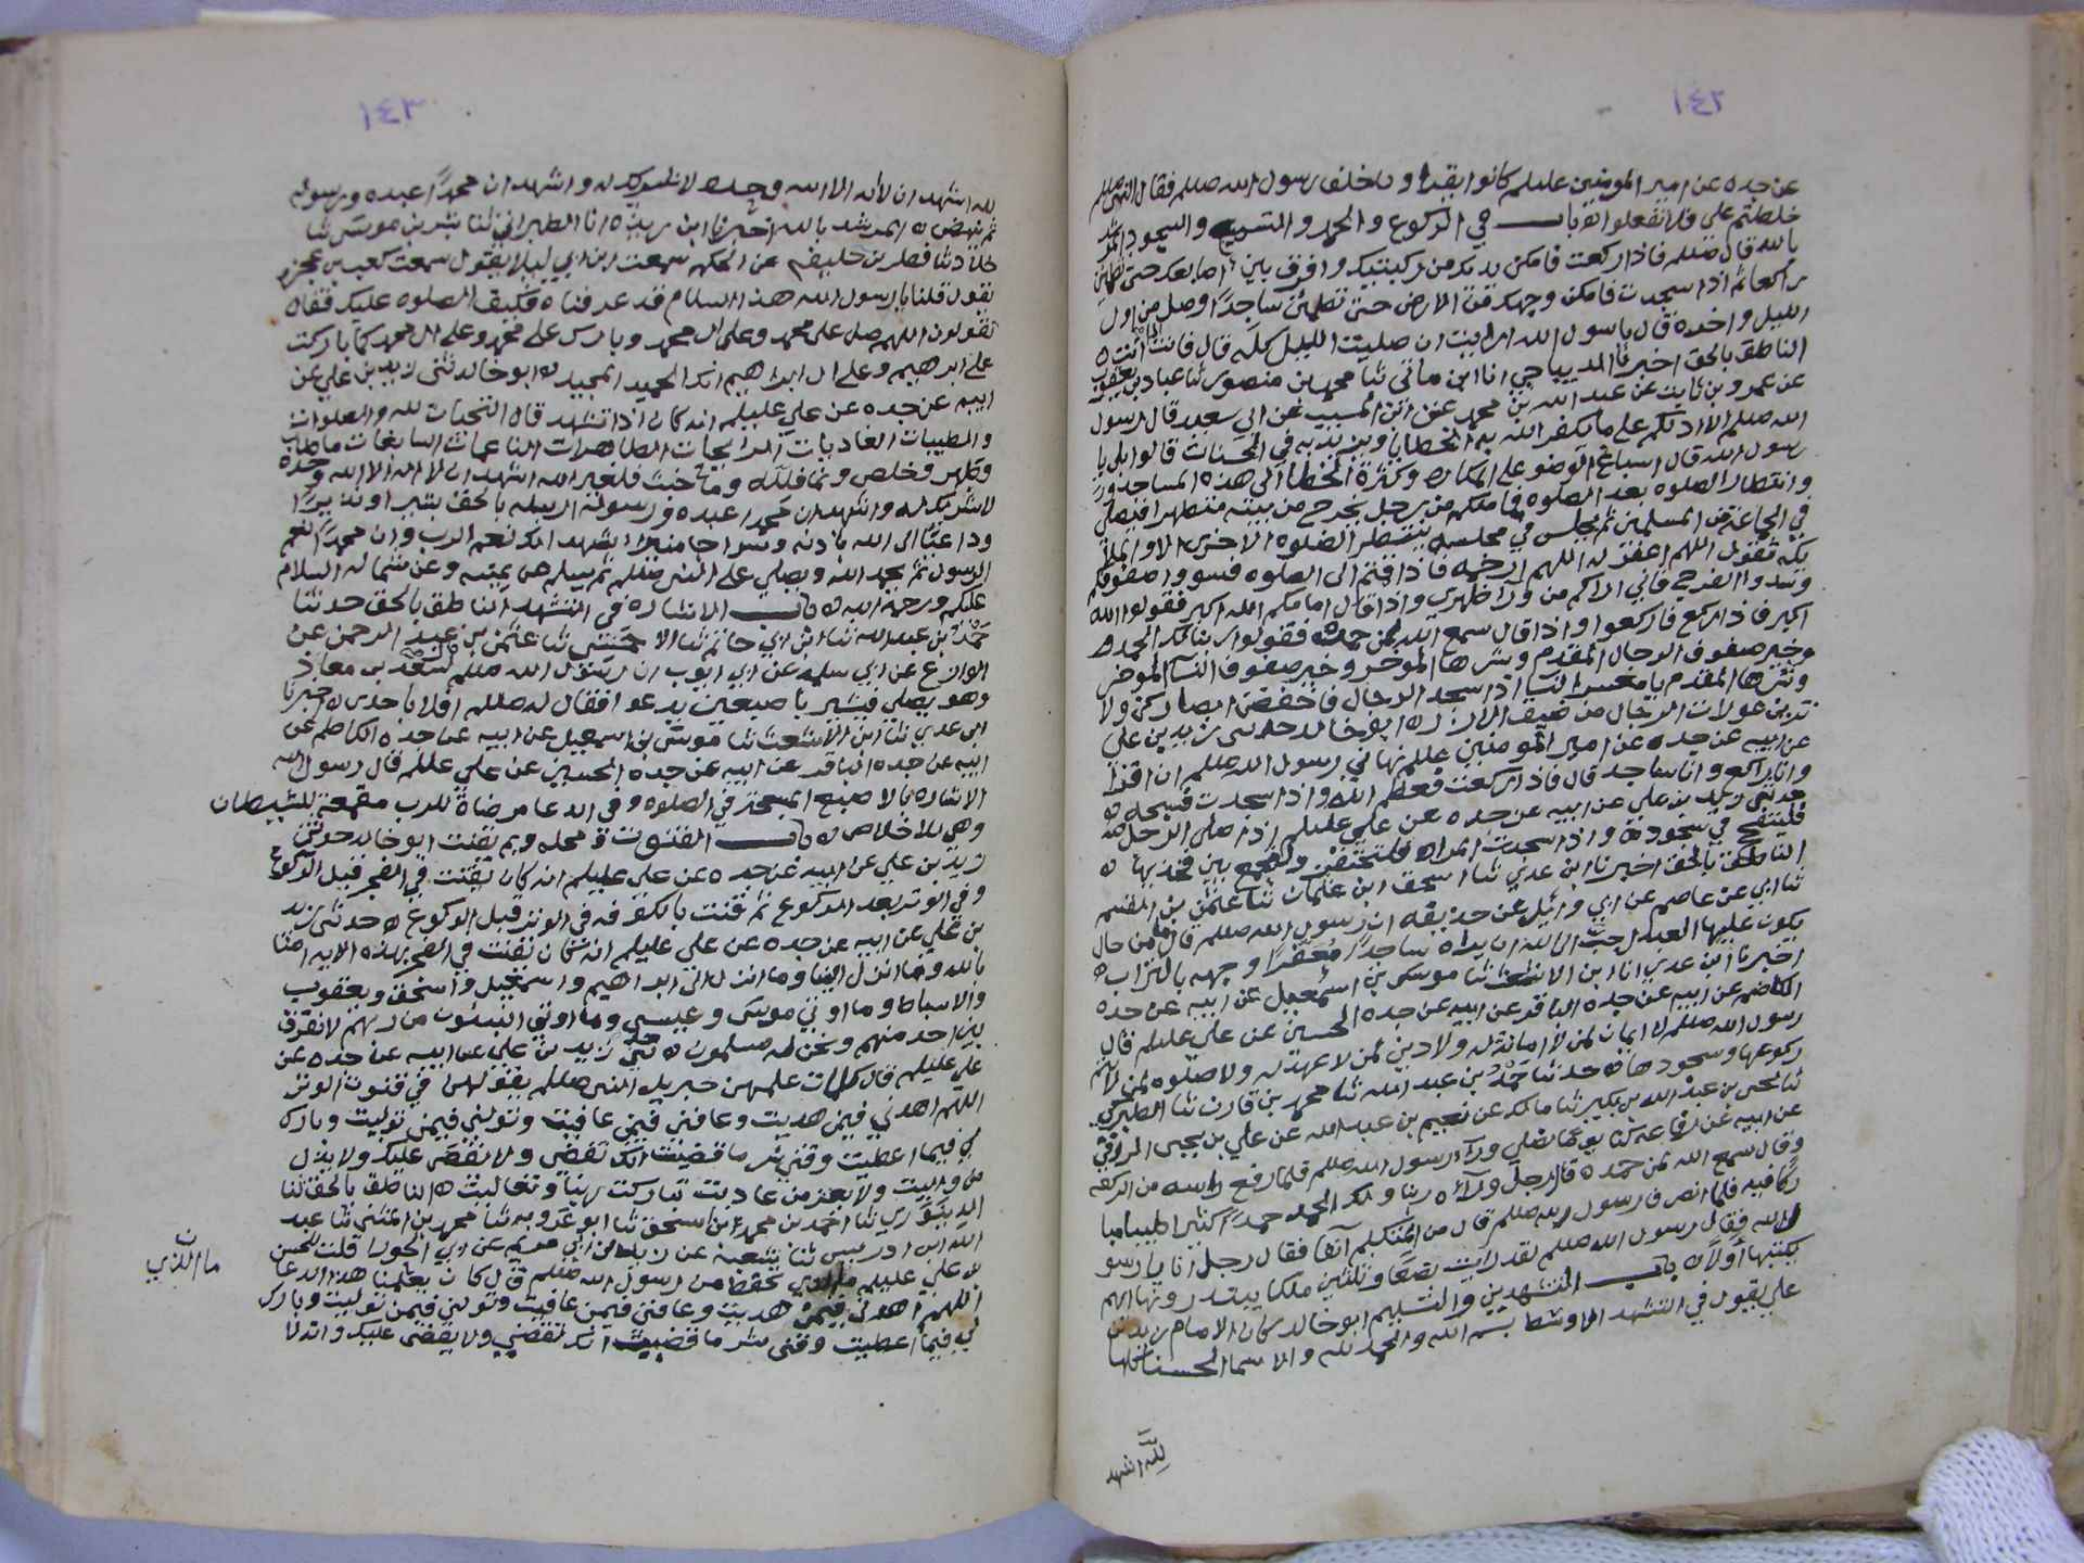 ١٤٢
عن جده عن امير المومنين عليلم كانوا يقراون خلف رسول الله صللم فقال النبي صللم
خلطتم علي فلا تفعلوا باب في الركوع والحمد والتسميع والسجود المرشد
بالله قال صللم فاذا ركعت فامكن يديك من ركبتيك وافرق بين اصابعك حتى تطمان
راكعا ثم اذا سجدت فامكن وجهك من الارض حتى تطمئن ساجدًا وصل من اول
الليل واخره قال يا رسول الله ارايت ان صليت الليل كله قال فانت اذًا انت ه
الناطق بالحق اخبرنا الديباجي انا ابن ماتي ثنا محمد بن منصور ثنا عباد بن يعقوب
عن عمرو بن ثابت عن عبد الله بن محمد عن ابن المسيب عن ابي سعيد قال رسول
الله صللم الا ادلكم على ما يكفر الله به الخطايا ويزيد به في الحسنات قالوا بلى يا
رسول الله قال اسباغ الوضو على المكاره وكثرة الخطا الى هذه المساجد
وانتظار الصلوه بعد الصلوه فما منكم من رجل يخرج من بيته متطهرا فيصلي
في الجماعة مع المسلمين ثم يجلس في مجلسه ينتظر الصلوه الاخرى الا والملائكة
تقول اللهم اغفر له اللهم ارحمه فاذا قمتم الى الصلوه فسووا صفوفكم
وسدوا الفرج فاني اراكم من ورآ ظهري واذا قال امامكم الله اكبر فقولوا الله
اكبر فاذا ركع فاركعوا واذا قال سمع الله لمن حمده فقولوا ربنا لك الحمد ه
وخير صفوف الرجال المقدم وشرها الموخر وخير صفوف النسآ الموخر
وشرها المقدم يا معشر النسا اذا سجد الرجال فاخفضن ابصاركن ولا
ترين عورات الرجال من ضيق الازر ه ابو خالد حدثني زيد بن علي
عن ابيه عن جده عن امير المومنين عليلم نهاني رسول الله صللم ان اقرا
وانا راكع وانا ساجد قال فاذا ركعت فعظم الله واذا سجدت فسبحه ه
حدثني زيد بن علي عن ابيه عن جده عن علي عليلم اذا صلى الرجل
فليتفحج في سجوده واذا سجدت المراه فلتحتفز ولتجمع بين فخذيها ه
الناطق بالحق اخبرنا ابن عدي ثنا اسحق ابن ثنا عثمن بن القسم
ثنا ابي عن عاصم عن ابي وائل عن حذيفه ان رسول الله صللم قال ما من حال
يكون عليها العبد احب الى الله ان يراه ساجدًا مُعَفِّرًا وجهه بالتراب ه
اخبرنا ابن عدي انا ابن الاشعث ثنا موسى بن اسمعيل عن ابيه عن جده
الكاضم عن ابيه عن جده الباقر عن ابيه عن جده الحسين عن علي عليلم قال
رسول الله صللم لا ايمان لمن لا امانة له ولا دين لمن لا عهد له ولا صلوه لمن لا يتم
ركوعها وسجودها ه حدثنا حَمْدُ بن عبد الله ثنا محمد بن قارن ثنا
ثنا يحيى بن عبد الله بن بكير ثنا مالك عن نعيم بن عبد الله عن علي بن يحيى الزرقي
عن ابيه عن رفاعه كنا يوما نصلي ورآ رسول الله صللم فلما رفع راسه من الركعه
وقال سمع الله لمن حمده قال رجل ورآه ربنا ولك الحمد حمدًا كثيرا طيبا مبا
ركا فيه فلما انصرف رسول الله صللم قال من المتكلم آنفا فقال رجل انا يا رسو
ل الله فقال رسول الله صللم لقد رايت بضعًا وثلثين ملكا يبتدرونها ايهم
يكتبها أولا ه باب التشهدين والتسليم ابو خالد كان الامام زيد بن
علي يقول في التشهد الاوسط بسم الله والحمد لله والاسما الحسنا كلها
لله اشهد
١٤٣
لله اشهد ان لا اله الا الله وحده لا شريك له واشهد ان محمدًا عبده ورسوله
ثم ينهض ه المرشد بالله اخبرنا ابن ريذه انا الطبراني ثنا بشر بن موسى ثنا
خلاد ثنا فطر بن خليفه عن الحكم سمعت ابن ابي ليلا يقول سمعت كعب بن عجره
يقول قلنا يا رسول الله هذا السلام قد عرفناه فكيف الصلوه عليك فقال
تقولون اللهم صل على محمد وعلى ال محمد وبارك على محمد وعلى ال محمد كما باركت
على ابرهيم وعلى ال ابراهيم انك الحميد المجيد ه ابو خالد ثنى زيد بن علي عن
ابيه عن جده عن علي عليلم انه كان اذا تشهد قال التحيات لله والصلوات
والطيبات الغاديات الرائحات الطاهرات الناعمات السابغات ما طاب
وطهر وخلص ونما فلله وما خبث فلغير الله اشهد ان لا اله الا الله وحده
لا شريك له واشهد ان محمدا عبده ورسوله ارسله بالحق بشيرا ونذيرًا
وداعيًا الى الله باذنه وسراجا منيرا اشهد انك نعم الرب وان محمدًا نعم
الرسول ثم يحمد الله ويصلي على النبي صللم ثم يسلم عن يمينه وعن شماله السلام
عليكم ورحمة الله ه باب الاشاره في التشهد الناطق بالحق حدثنا
حَمْدُ بن عبد الله ثنا ابن ابي حاتم ثنا الاحمسي ثنا عثمن بن عبد الرحمن عن
الوازع عن ابي سلمه عن ابي ايوب ان رسول الله صللم لسعد بن معاذ
وهو يصلي فيشير باصبعين يدعوا فقال له صللم أفلا باحدى ه اخبرنا
ابن عدي ثنا ابن الاشعث ثنا موسى بن اسمعيل عن ابيه عن جده الكاظم عن
ابيه عن جده الباقر عن ابيه عن جده الحسين عن علي عليلم قال رسول الله
الاشاره بالاصبع المسبحة في الصلوه وفي الدعا مرضاة للرب مقمعة للشيطان
وهي للاخلاص ه باب القنوت ومحله وبم يقنت ابو خالد حدثني
زيد بن علي عن ابيه عن جده عن علي عليلم انه كان يقنت في الفجر قبل الركوع
وفي الوتر بعد الركوع ثم قنت بالكوفه في الوتر قبل الركوع ه حدثني زيد
بن علي عن ابيه عن جده عن علي عليلم انه كان يقنت في الفجر بهذه الايه امنا
بالله وما انزل الينا وما انزل الى ابراهيم واسمعيل واسحق ويعقوب
والاسباط وما اوتي موسى وعيسى وما اوتي النبيون من ربهم لا نفرق
بين احد منهم ونحن له مسلمون ه ثنى زيد بن علي عن ابيه عن جده عن
علي عليلم قال كلمات علمهن جبريل النبي صللم يقولهن في قنوت الوتر
اللهم اهدني فيمن هديت وعافني فيمن عافيت وتولني فيمن توليت وبارك
لي فيما اعطيت وقني شر ما قضيت انك تقضي ولا يقضى عليك ولا يذل
من واليت ولا يعز من عاديت تباركت ربنا وتعاليت ه الناطق بالحق ثنا
الدينوري ثنا احمد بن محمد ابن اسحق ثنا ابو عَرُوبه ثنا محمد بن المثنى ثنا عبد
الله ابن ادريس ثنا شعبة عن بريد ابن ابي مريم عن ابي الحورا قلت للحسن
بن علي عليلم ما الذي تحفظ من رسول الله صللم قال كان يعلمنا هذا الدعا
اللهم اهدني فيمن هديت وعافني فيمن عافيت وتولني فيمن توليت وبارك
لي فيما اعطيت وقني شر ما قضيت انك تقضي ولا يقضى عليك وانه لا
ما الذي